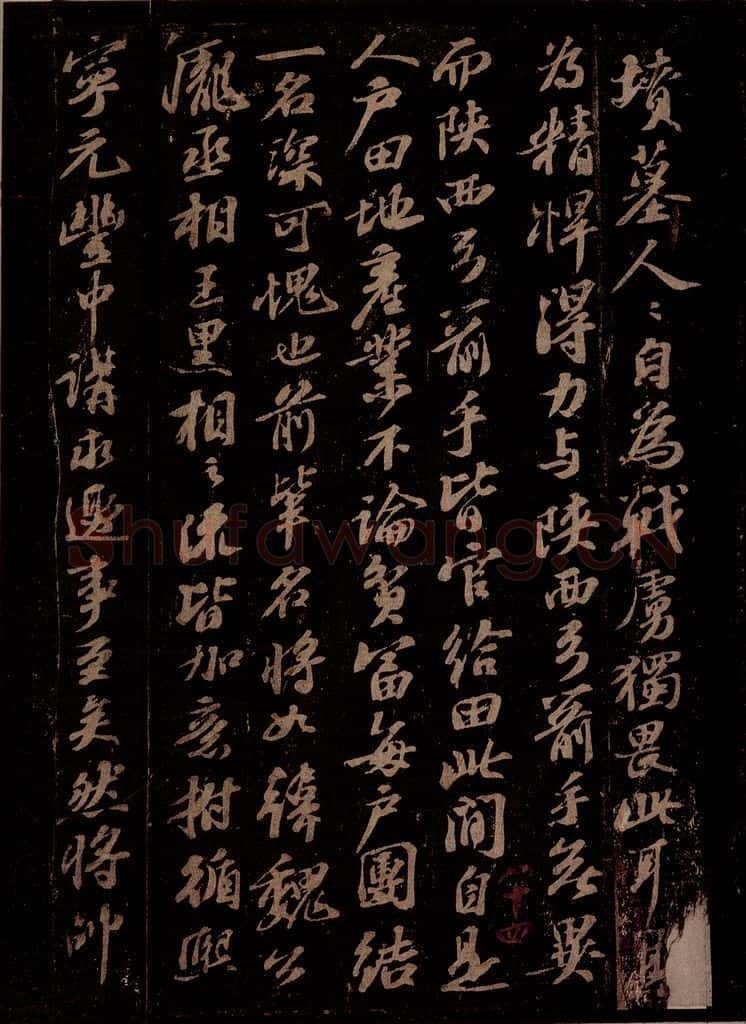 墳墓人〻自為戰虜獨畏此耳
為精悍得力与陝西弓箭手無異
而陝西弓箭手皆官給田此間自是
人户田地產業不論貧富每户團結
一名深可愧也前輩名將如韓魏公
龐丞相王〻相〻流皆加意拊循熙
寧元豐中講求邊事至矣然將帥
十四
shufawang.cn